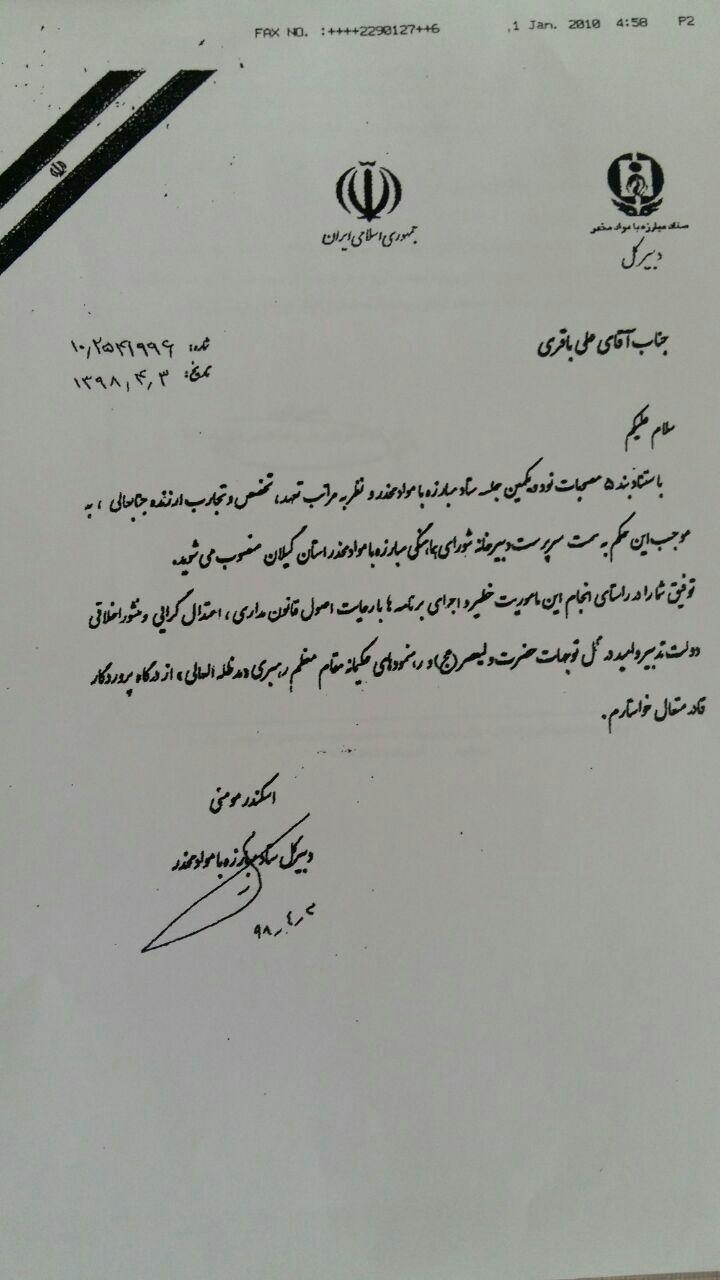 FAX NO. :++++2290127++6 ,1 Jan. 2010 4:58 P2
جمهوری اسلامی ایران
ستاد مبارزه با مواد مخدر
دبیر کل
شماره: ۱۰٫۲۵۴۱۹۹۶
تاریخ: ۱۳۹۸٫۴٫۳
جناب آقای علی باقری
سلام علیکم
با استناد بند ۵ مصوبات نود و یکمین جلسه ستاد مبارزه با مواد مخدر و نظر به مراتب تعهد، تخصص و تجارب ارزنده جنابعالی ، به
موجب این حکم به سمت سرپرست دبیرخانه شورای هماهنگی مبارزه با مواد مخدر استان گیلان منصوب می شوید.
توفیق شما را در راستای انجام این ماموریت خطیر و اجرای برنامه ها با رعایت اصول قانون مداری ، اعتدال گرایی و منشور اخلاقی
دولت تدبیر و امید در ظل توجهات حضرت ولیعصر(عج) و رهنمودهای حکیمانه مقام معظم رهبری «مدظله العالی» از درگاه پروردگار
قادر متعال خواستارم.
اسکندر مومنی
دبیرکل ستاد مبارزه با مواد مخدر
۹۸٫۴٫۳